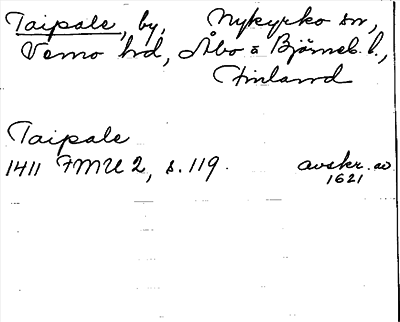 Taipale, by, Nykyrko sn,
Vemo hd, Åbo o Björneb. l.,
Finland
Taipale
1411 FMU 2, s. 119. avskr. av
1621